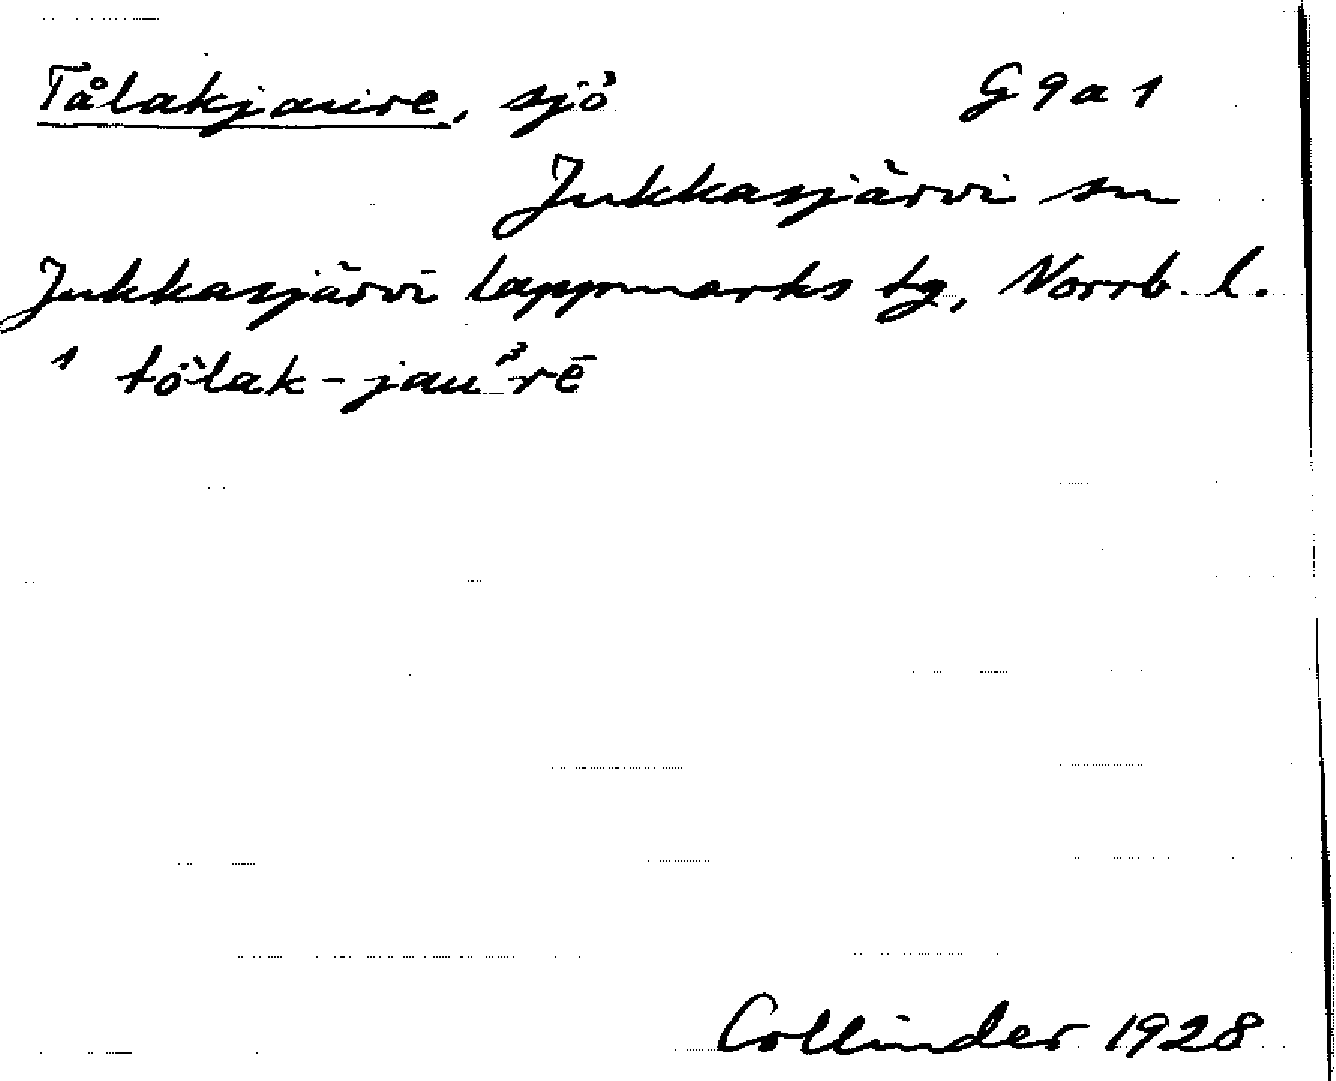 Tålakjaure, sjö G 9 a 1
Jukkasjärvi sn
Jukkasjärvi lappmarks tg, Norrb. l.
1 tö̀lak-jau³rē
Collinder 1928